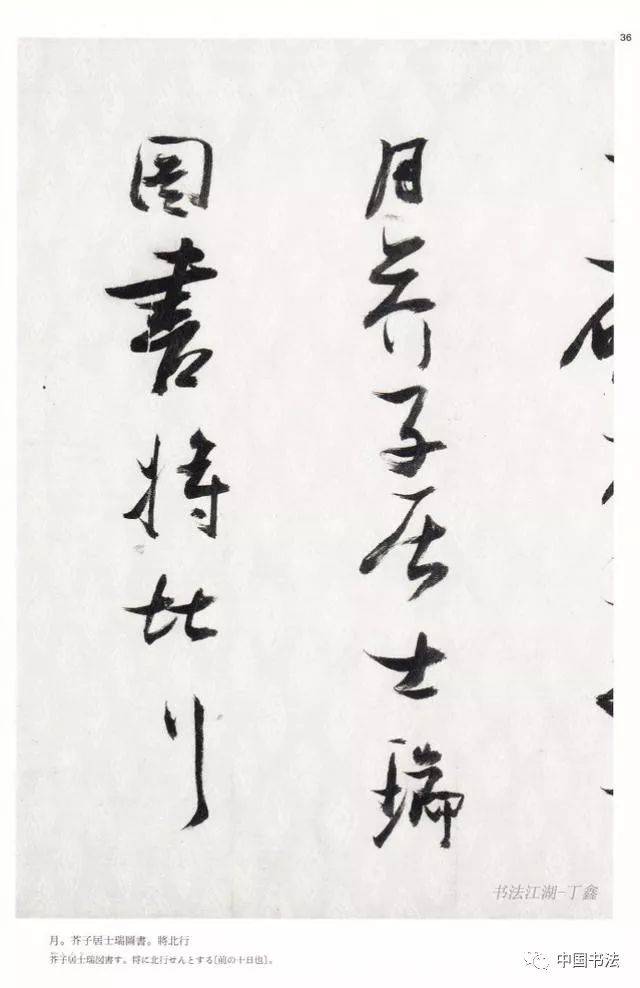 36
月芥子居士瑞
圖書將北行
书法江湖-丁鑫
月。芥子居士瑞圖書。將北行
芥子居士瑞図書す。将に北行せんとする[前の十日也]。
中国书法